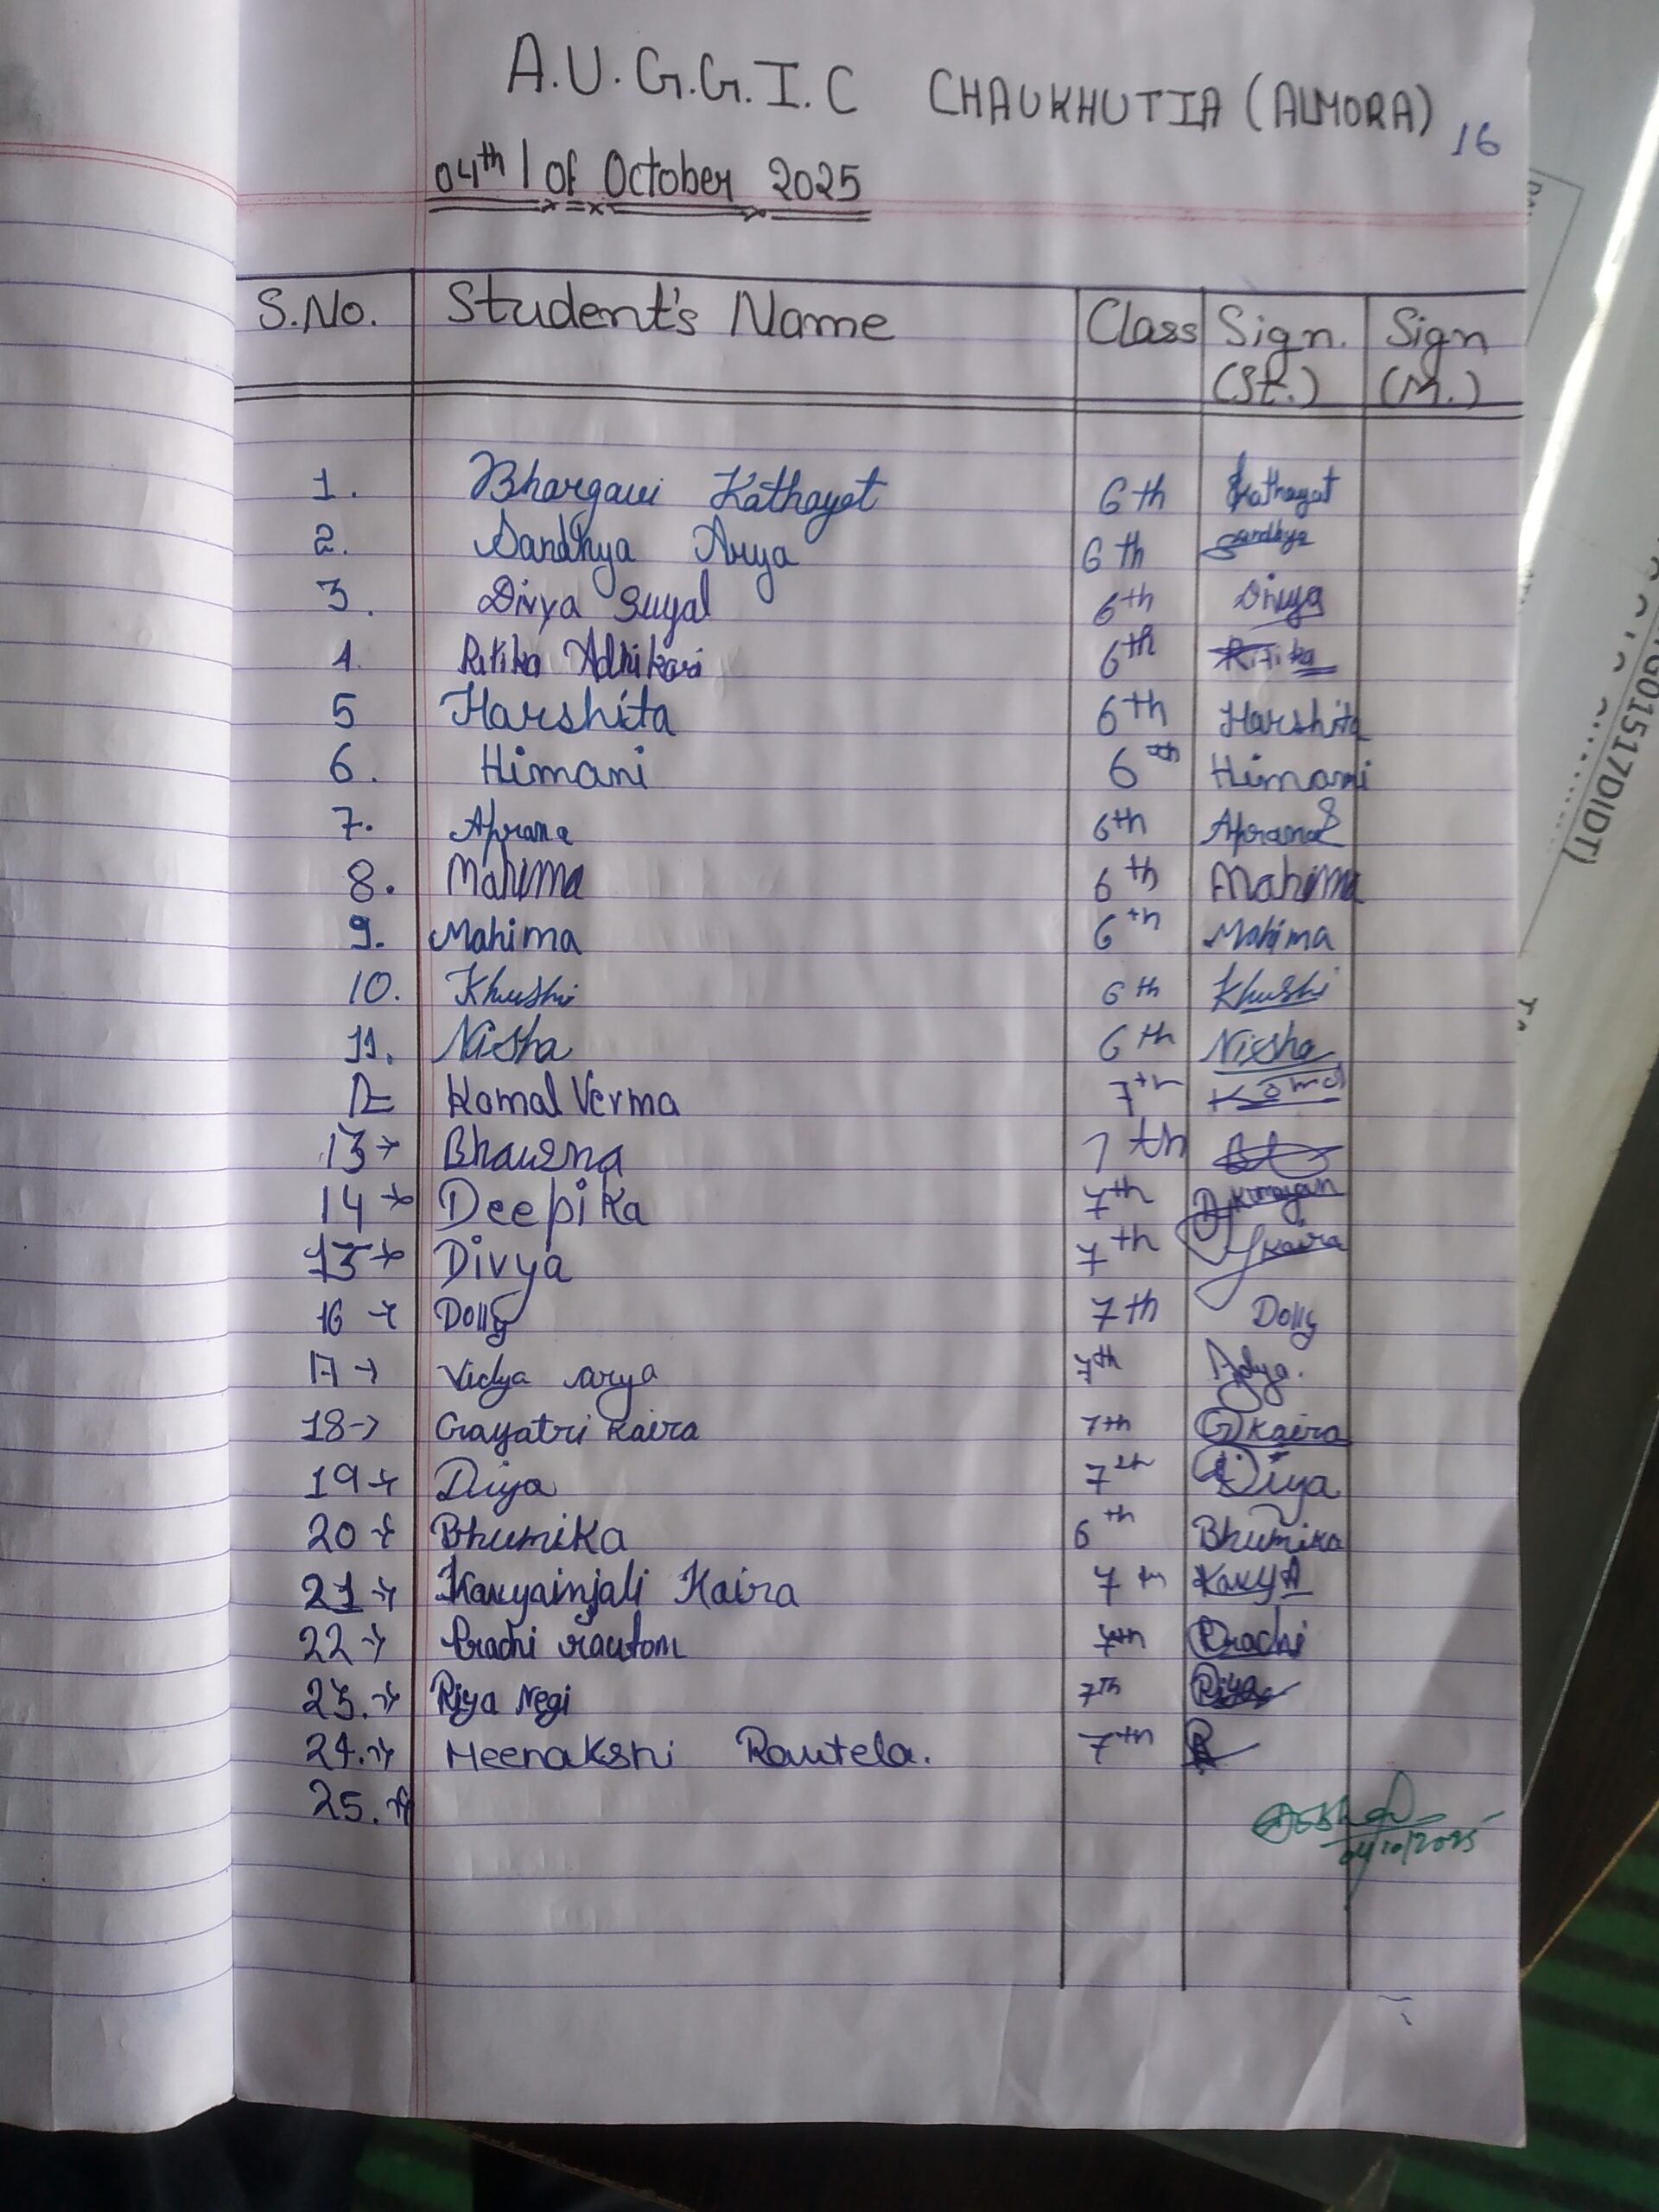 A.U.G.G.I.C CHAUKHUTIA (ALMORA) 16
04th / of October 2025
S.No. Student's Name Class Sign. (St.) Sign (M.)
1. Bhargavi Kathayat 6th Kathayat
2. Sandhya Arya 6th Sandhya
3. Divya Suyal 6th Divya
4. Ritika Adhikari 6th Ritika
5 Harshita 6th Harshita
6. Himani 6th Himani
7. Aprana 6th Aprana
8. Mahima 6th Mahima
9. Mahima 6th Mahima
10. Khushi 6th Khushi
11. Nisha 6th Nisha
12 Komal Verma 7th Komal
13→ Bhawna 7th
14→ Deepika 7th
15→ Divya 7th Kaira
16→ Dolly 7th Dolly
17→ Vidya Arya 7th
18→ Gayatri Kaira 7th G Kaira
19→ Diya 7th Diya
20→ Bhumika 6th Bhumika
21→ Kavyainjali Kaira 7th KavyA
22→ Prachi 7th Prachi
23.→ Riya Negi 7th Riya
24.→ Meenakshi Rautela. 7th
25.→
04/10/2025
G01517DIDT)